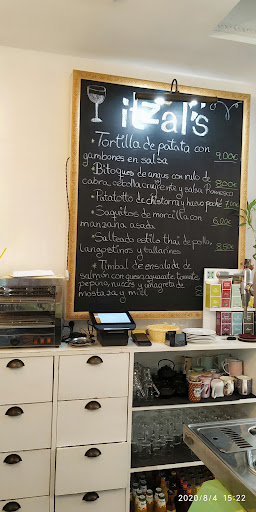 itzal's
* Tortilla de patata con
gambones en salsa 9,00€
* Bitoques de angus con rulo de
cabra, cebolla crujiente y salsa Romesco 8,00€
* Patatotto de chistorra y huevo poché 7,00€
* Saquitos de morcilla con
manzana asada 6,00€
* Salteado estilo thai de pollo,
langostinos y tallarines 8,50€
* Timbal de ensalada de
salmón con queso, aguacate, tomate,
pepino, nueces y vinagreta de
mostaza y miel
2020/8/4 15:22